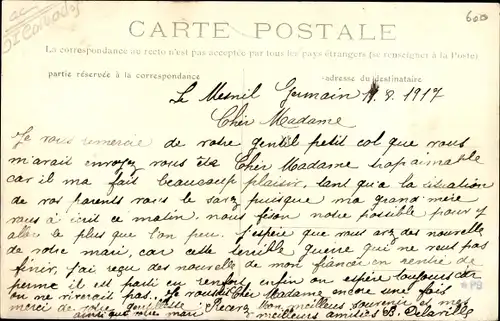 St Carbados
600
CARTE POSTALE
La correspondance au recto n'est pas acceptée par tous les pays étrangers (se renseigner à la Poste)
partie réservée à la correspondance adresse du destinataire
Le Mesnil Germain 11.9.1917
Cher Madame
Je vous remercie de votre gentil petit col que vous
m'avait envoyez vous ète Cher Madame trop aimable
car il ma fait beaucoup plaisir, tant qu'a la situation
de vos parents vous le savez puisque ma grand'mère
vous à écrit ce matin, nous feson notre possible pour y
aller le plus que l'on peu. J'espère que vous avez des nouvelle
de votre mari, car cette terrible guerre qui ne veut pas
finir, j'ai reçu des nouvelle de mon fiancé en rentré de
perme il est parti en renfort enfin on espère toujours car
on ne vivrait pas. Je vous dit Cher Madame encore une fois
merci de votre gentillesse Recevez mon meilleurs souvenir et mes
ainsi que votre mari meilleurs amitiés B. Delaville
PB